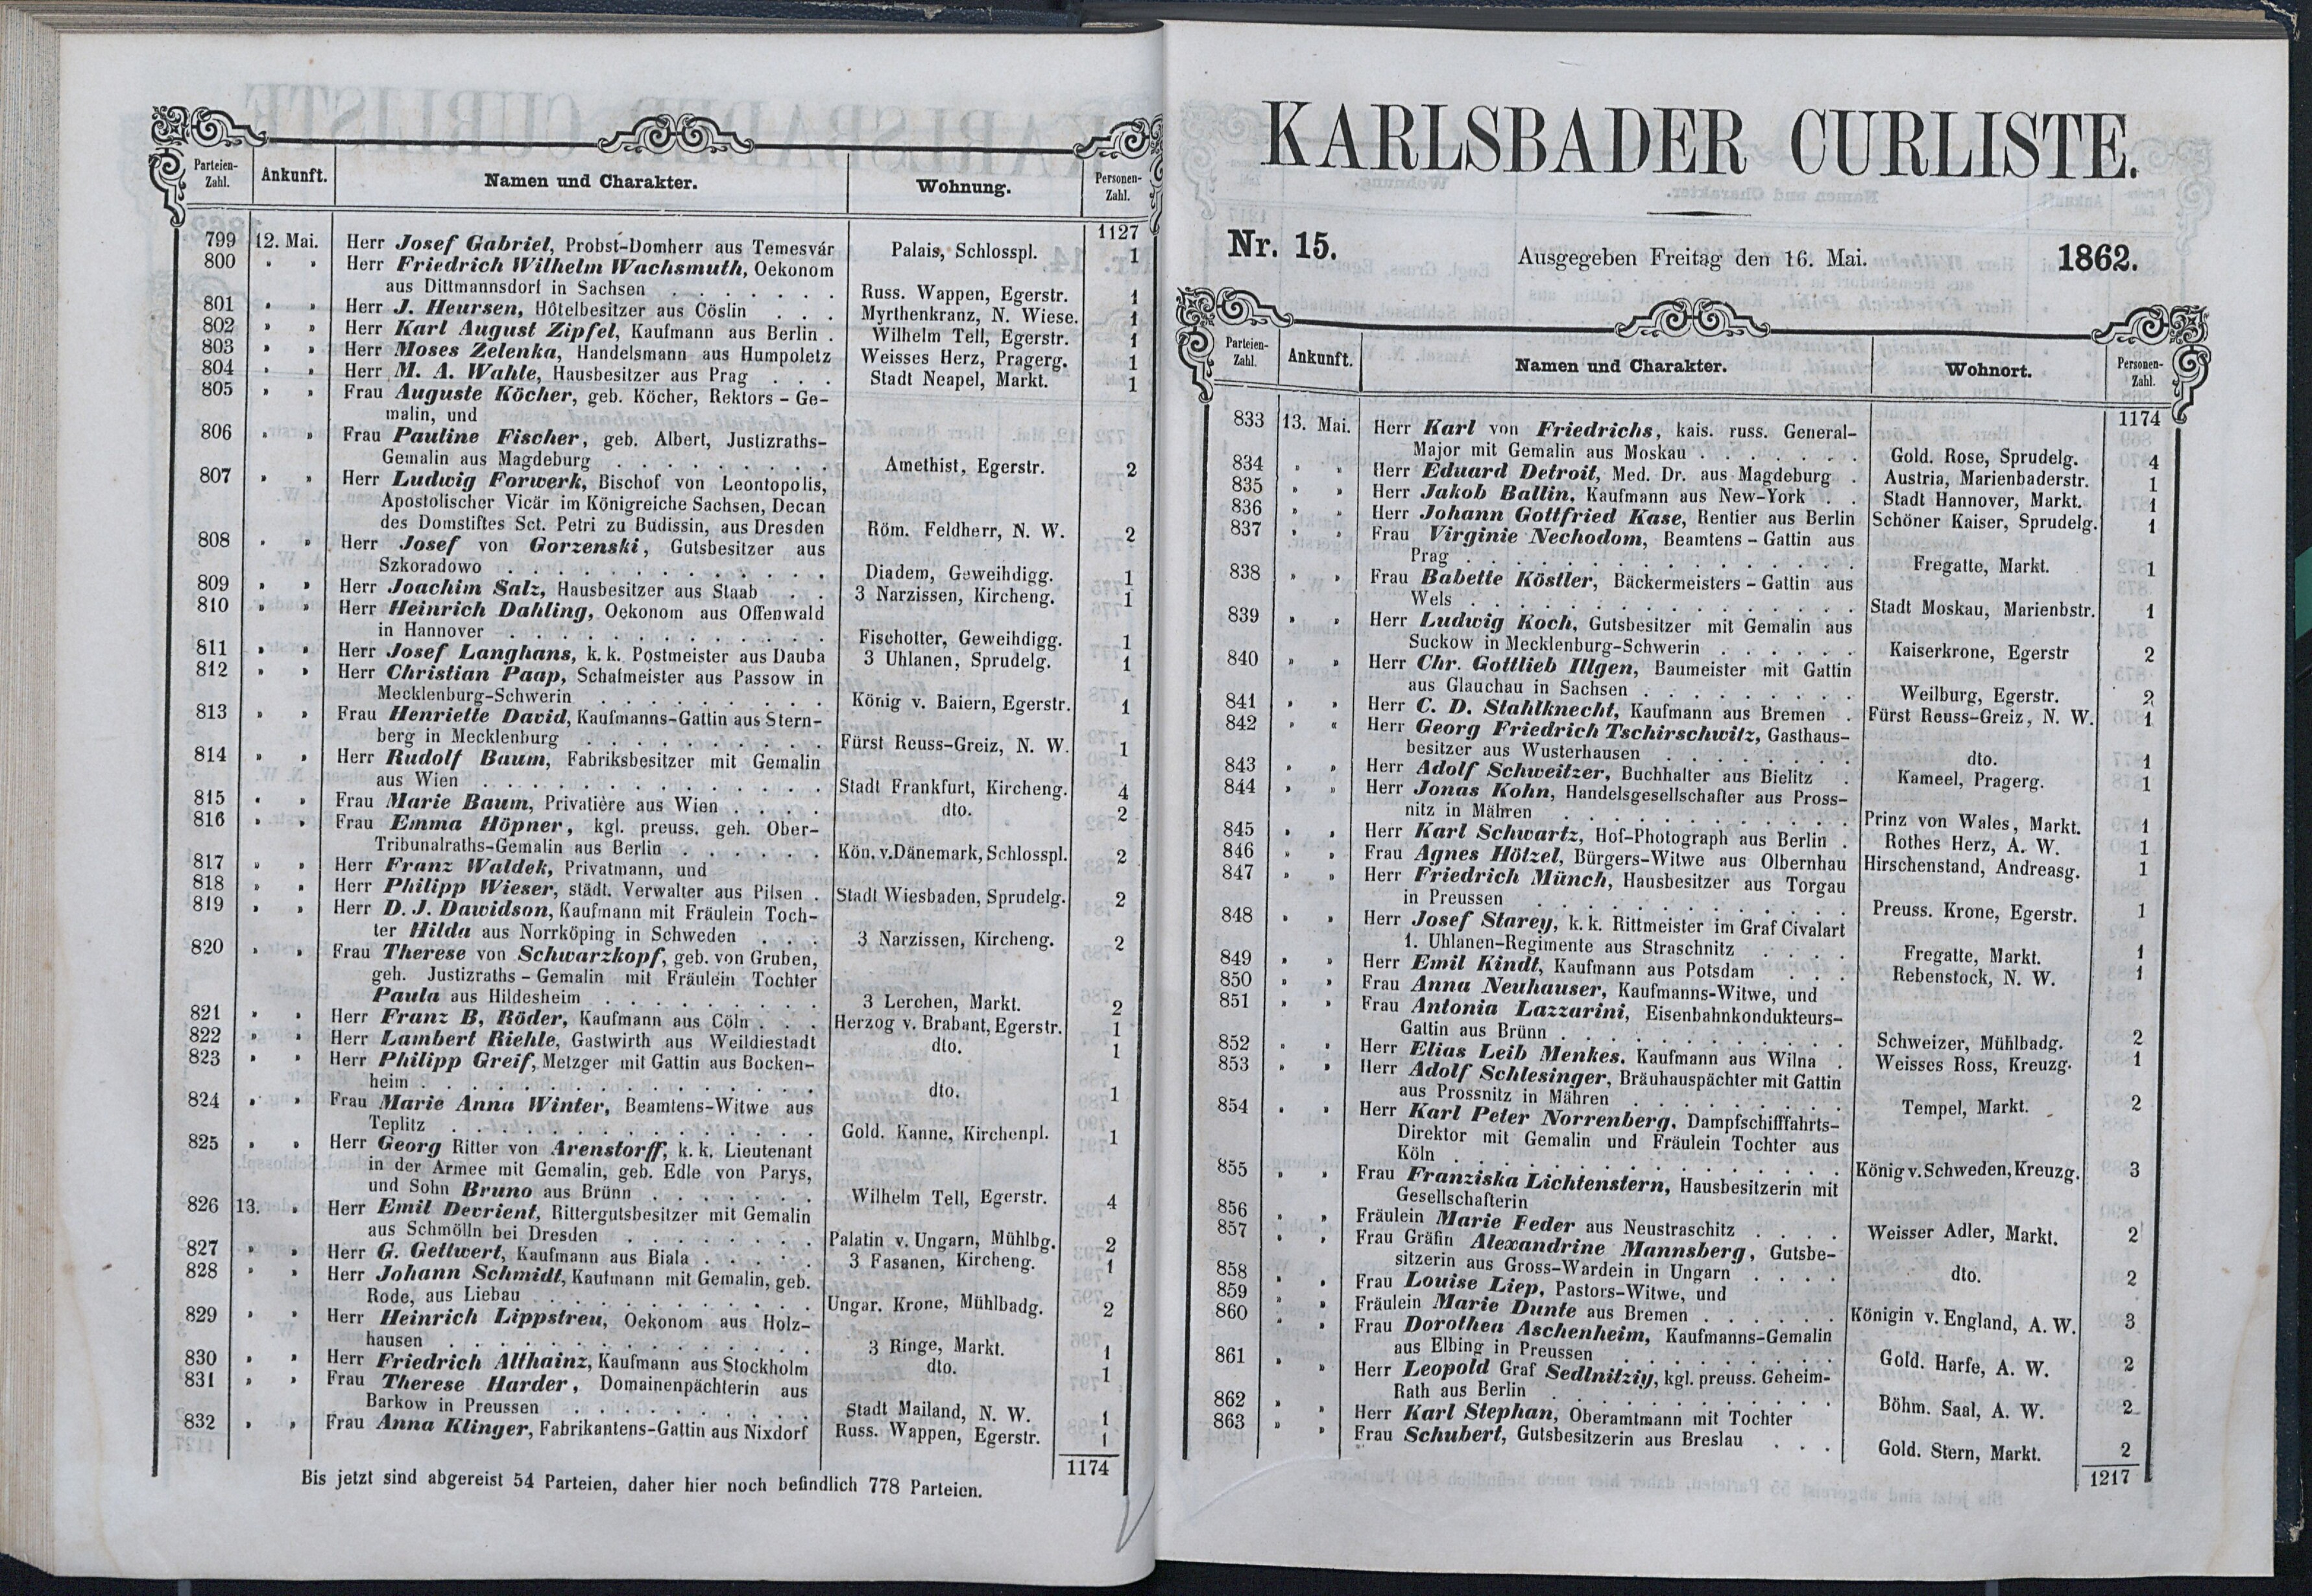 Parteien-Zahl. Ankunft. Namen und Charakter. Wohnung. Personen-Zahl.
1127
799 12. Mai. Herr Josef Gabriel, Probst-Domherr aus Temesvár Palais, Schlosspl. 1
800 " " Herr Friedrich Wilhelm Wachsmuth, Oekonom
aus Dittmannsdorf in Sachsen . . . . . . . Russ. Wappen, Egerstr. 1
801 " " Herr J. Heursen, Hôtelbesitzer aus Cöslin . . . Myrthenkranz, N. Wiese. 1
802 " " Herr Karl August Zipfel, Kaufmann aus Berlin . Wilhelm Tell, Egerstr. 1
803 " " Herr Moses Zelenka, Handelsmann aus Humpoletz Weisses Herz, Pragerg. 1
804 " " Herr M. A. Wahle, Hausbesitzer aus Prag . . . Stadt Neapel, Markt. 1
805 " " Frau Auguste Köcher, geb. Köcher, Rektors-Ge-
malin, und
806 " " Frau Pauline Fischer, geb. Albert, Justizraths-
Gemalin aus Magdeburg . . . . . . . . . Amethist, Egerstr. 2
807 " " Herr Ludwig Forwerk, Bischof von Leontopolis,
Apostolischer Vicär im Königreiche Sachsen, Decan
des Domstiftes Sct. Petri zu Budissin, aus Dresden Röm. Feldherr, N. W. 2
808 " " Herr Josef von Gorzenski, Gutsbesitzer aus
Szkoradowo . . . . . . . . . . . . . Diadem, Geweihdigg. 1
809 " " Herr Joachim Salz, Hausbesitzer aus Staab . . 3 Narzissen, Kircheng. 1
810 " " Herr Heinrich Dahling, Oekonom aus Offenwald
in Hannover . . . . . . . . . . . . . Fischotter, Geweihdigg. 1
811 " " Herr Josef Langhans, k. k. Postmeister aus Dauba 3 Uhlanen, Sprudelg. 1
812 " " Herr Christian Paap, Schafmeister aus Passow in
Mecklenburg-Schwerin . . . . . . . . . König v. Baiern, Egerstr. 1
813 " " Frau Henriette David, Kaufmanns-Gattin aus Stern-
berg in Mecklenburg . . . . . . . . . . Fürst Reuss-Greiz, N. W. 1
814 " " Herr Rudolf Baum, Fabriksbesitzer mit Gemalin
aus Wien . . . . . . . . . . . . . . Stadt Frankfurt, Kircheng. 4
815 " " Frau Marie Baum, Privatière aus Wien . . . . dto. 2
816 " " Frau Emma Höpner, kgl. preuss. geh. Ober-
Tribunalraths-Gemalin aus Berlin . . . . . . Kön. v. Dänemark, Schlosspl. 2
817 " " Herr Franz Waldek, Privatmann, und
818 " " Herr Philipp Wieser, städt. Verwalter aus Pilsen . Stadt Wiesbaden, Sprudelg. 2
819 " " Herr D. J. Dawidson, Kaufmann mit Fräulein Toch-
ter Hilda aus Norrköping in Schweden . . . 3 Narzissen, Kircheng. 2
820 " " Frau Therese von Schwarzkopf, geb. von Gruben,
geh. Justizraths-Gemalin mit Fräulein Tochter
Paula aus Hildesheim . . . . . . . . . 3 Lerchen, Markt. 2
821 " " Herr Franz B, Röder, Kaufmann aus Cöln . . . Herzog v. Brabant, Egerstr. 1
822 " " Herr Lambert Riehle, Gastwirth aus Weildiestadt dto. 1
823 " " Herr Philipp Greif, Metzger mit Gattin aus Bocken-
heim . . . . . . . . . . . . . . . dto. 1
824 " " Frau Marie Anna Winter, Beamtens-Witwe aus
Teplitz . . . . . . . . . . . . . . Gold. Kanne, Kirchenpl. 1
825 " " Herr Georg Ritter von Arenstorff, k. k. Lieutenant
in der Armee mit Gemalin, geb. Edle von Parys,
und Sohn Bruno aus Brünn . . . . . . . Wilhelm Tell, Egerstr. 4
826 13. " Herr Emil Devrient, Rittergutsbesitzer mit Gemalin
aus Schmölln bei Dresden . . . . . . . . Palatin v. Ungarn, Mühlbg. 2
827 " " Herr G. Gettwert, Kaufmann aus Biala . . . . . 3 Fasanen, Kircheng. 1
828 " " Herr Johann Schmidt, Kaufmann mit Gemalin, geb.
Rode, aus Liebau . . . . . . . . . . . Ungar. Krone, Mühlbadg. 2
829 " " Herr Heinrich Lippstreu, Oekonom aus Holz-
hausen . . . . . . . . . . . . . . 3 Ringe, Markt. 1
830 " " Herr Friedrich Althainz, Kaufmann aus Stockholm dto. 1
831 " " Frau Therese Harder, Domainenpächterin aus
Barkow in Preussen . . . . . . . . . . Stadt Mailand, N. W. 1
832 " " Frau Anna Klinger, Fabrikantens-Gattin aus Nixdorf Russ. Wappen, Egerstr. 1
1174
Bis jetzt sind abgereist 54 Parteien, daher hier noch befindlich 778 Parteien.
KARLSBADER CURLISTE.
Nr. 15. Ausgegeben Freitag den 16. Mai. 1862.
Parteien-Zahl. Ankunft. Namen und Charakter. Wohnort. Personen-Zahl.
1174
833 13. Mai. Herr Karl von Friedrichs, kais. russ. General-
Major mit Gemalin aus Moskau . . . . . . Gold. Rose, Sprudelg. 4
834 " " Herr Eduard Detroit, Med. Dr. aus Magdeburg . Austria, Marienbaderstr. 1
835 " " Herr Jakob Ballin, Kaufmann aus New-York . . Stadt Hannover, Markt. 1
836 " " Herr Johann Gottfried Kase, Rentier aus Berlin Schöner Kaiser, Sprudelg. 1
837 " " Frau Virginie Nechodom, Beamtens-Gattin aus
Prag . . . . . . . . . . . . . . . Fregatte, Markt. 1
838 " " Frau Babette Köstler, Bäckermeisters-Gattin aus
Wels . . . . . . . . . . . . . . . Stadt Moskau, Marienbstr. 1
839 " " Herr Ludwig Koch, Gutsbesitzer mit Gemalin aus
Suckow in Mecklenburg-Schwerin . . . . . . Kaiserkrone, Egerstr 2
840 " " Herr Chr. Gottlieb Illgen, Baumeister mit Gattin
aus Glauchau in Sachsen . . . . . . . . . Weilburg, Egerstr. 2
841 " " Herr C. D. Stahlknecht, Kaufmann aus Bremen . Fürst Reuss-Greiz, N. W. 1
842 " " Herr Georg Friedrich Tschirschwitz, Gasthaus-
besitzer aus Wusterhausen . . . . . . . . dto. 1
843 " " Herr Adolf Schweitzer, Buchhalter aus Bielitz . Kameel, Pragerg. 1
844 " " Herr Jonas Kohn, Handelsgesellschafter aus Pross-
nitz in Mähren . . . . . . . . . . . . Prinz von Wales, Markt. 1
845 " " Herr Karl Schwartz, Hof-Photograph aus Berlin . Rothes Herz, A. W. 1
846 " " Frau Agnes Hötzel, Bürgers-Witwe aus Olbernhau Hirschenstand, Andreasg. 1
847 " " Herr Friedrich Münch, Hausbesitzer aus Torgau
in Preussen . . . . . . . . . . . . . Preuss. Krone, Egerstr. 1
848 " " Herr Josef Starey, k. k. Rittmeister im Graf Civalart
1. Uhlanen-Regimente aus Straschnitz . . . . Fregatte, Markt. 1
849 " " Herr Emil Kindt, Kaufmann aus Potsdam . . Rebenstock, N. W. 1
850 " " Frau Anna Neuhauser, Kaufmanns-Witwe, und
851 " " Frau Antonia Lazzarini, Eisenbahnkondukteurs-
Gattin aus Brünn . . . . . . . . . . . Schweizer, Mühlbadg. 2
852 " " Herr Elias Leib Menkes. Kaufmann aus Wilna . Weisses Ross, Kreuzg. 1
853 " " Herr Adolf Schlesinger, Bräuhauspächter mit Gattin
aus Prossnitz in Mähren . . . . . . . . . Tempel, Markt. 2
854 " " Herr Karl Peter Norrenberg. Dampfschifffahrts-
Direktor mit Gemalin und Fräulein Tochter aus
Köln . . . . . . . . . . . . . . . König v. Schweden, Kreuzg. 3
855 " " Frau Franziska Lichtenstern, Hausbesitzerin mit
Gesellschafterin
856 " " Fräulein Marie Feder aus Neustraschitz . . . . Weisser Adler, Markt. 2
857 " " Frau Gräfin Alexandrine Mannsberg, Gutsbe-
sitzerin aus Gross-Wardein in Ungarn . . . . dto. 2
858 " " Frau Louise Liep, Pastors-Witwe, und
859 " " Fräulein Marie Dunte aus Bremen . . . . . . Königin v. England, A. W. 3
860 " " Frau Dorothea Aschenheim, Kaufmanns-Gemalin
aus Elbing in Preussen . . . . . . . . . Gold. Harfe, A. W. 2
861 " " Herr Leopold Graf Sedlnitziy, kgl. preuss. Geheim-
Rath aus Berlin . . . . . . . . . . . . Böhm. Saal, A. W. 2
862 " " Herr Karl Stephan, Oberamtmann mit Tochter
863 " " Frau Schubert, Gutsbesitzerin aus Breslau . . . Gold. Stern, Markt. 2
1217